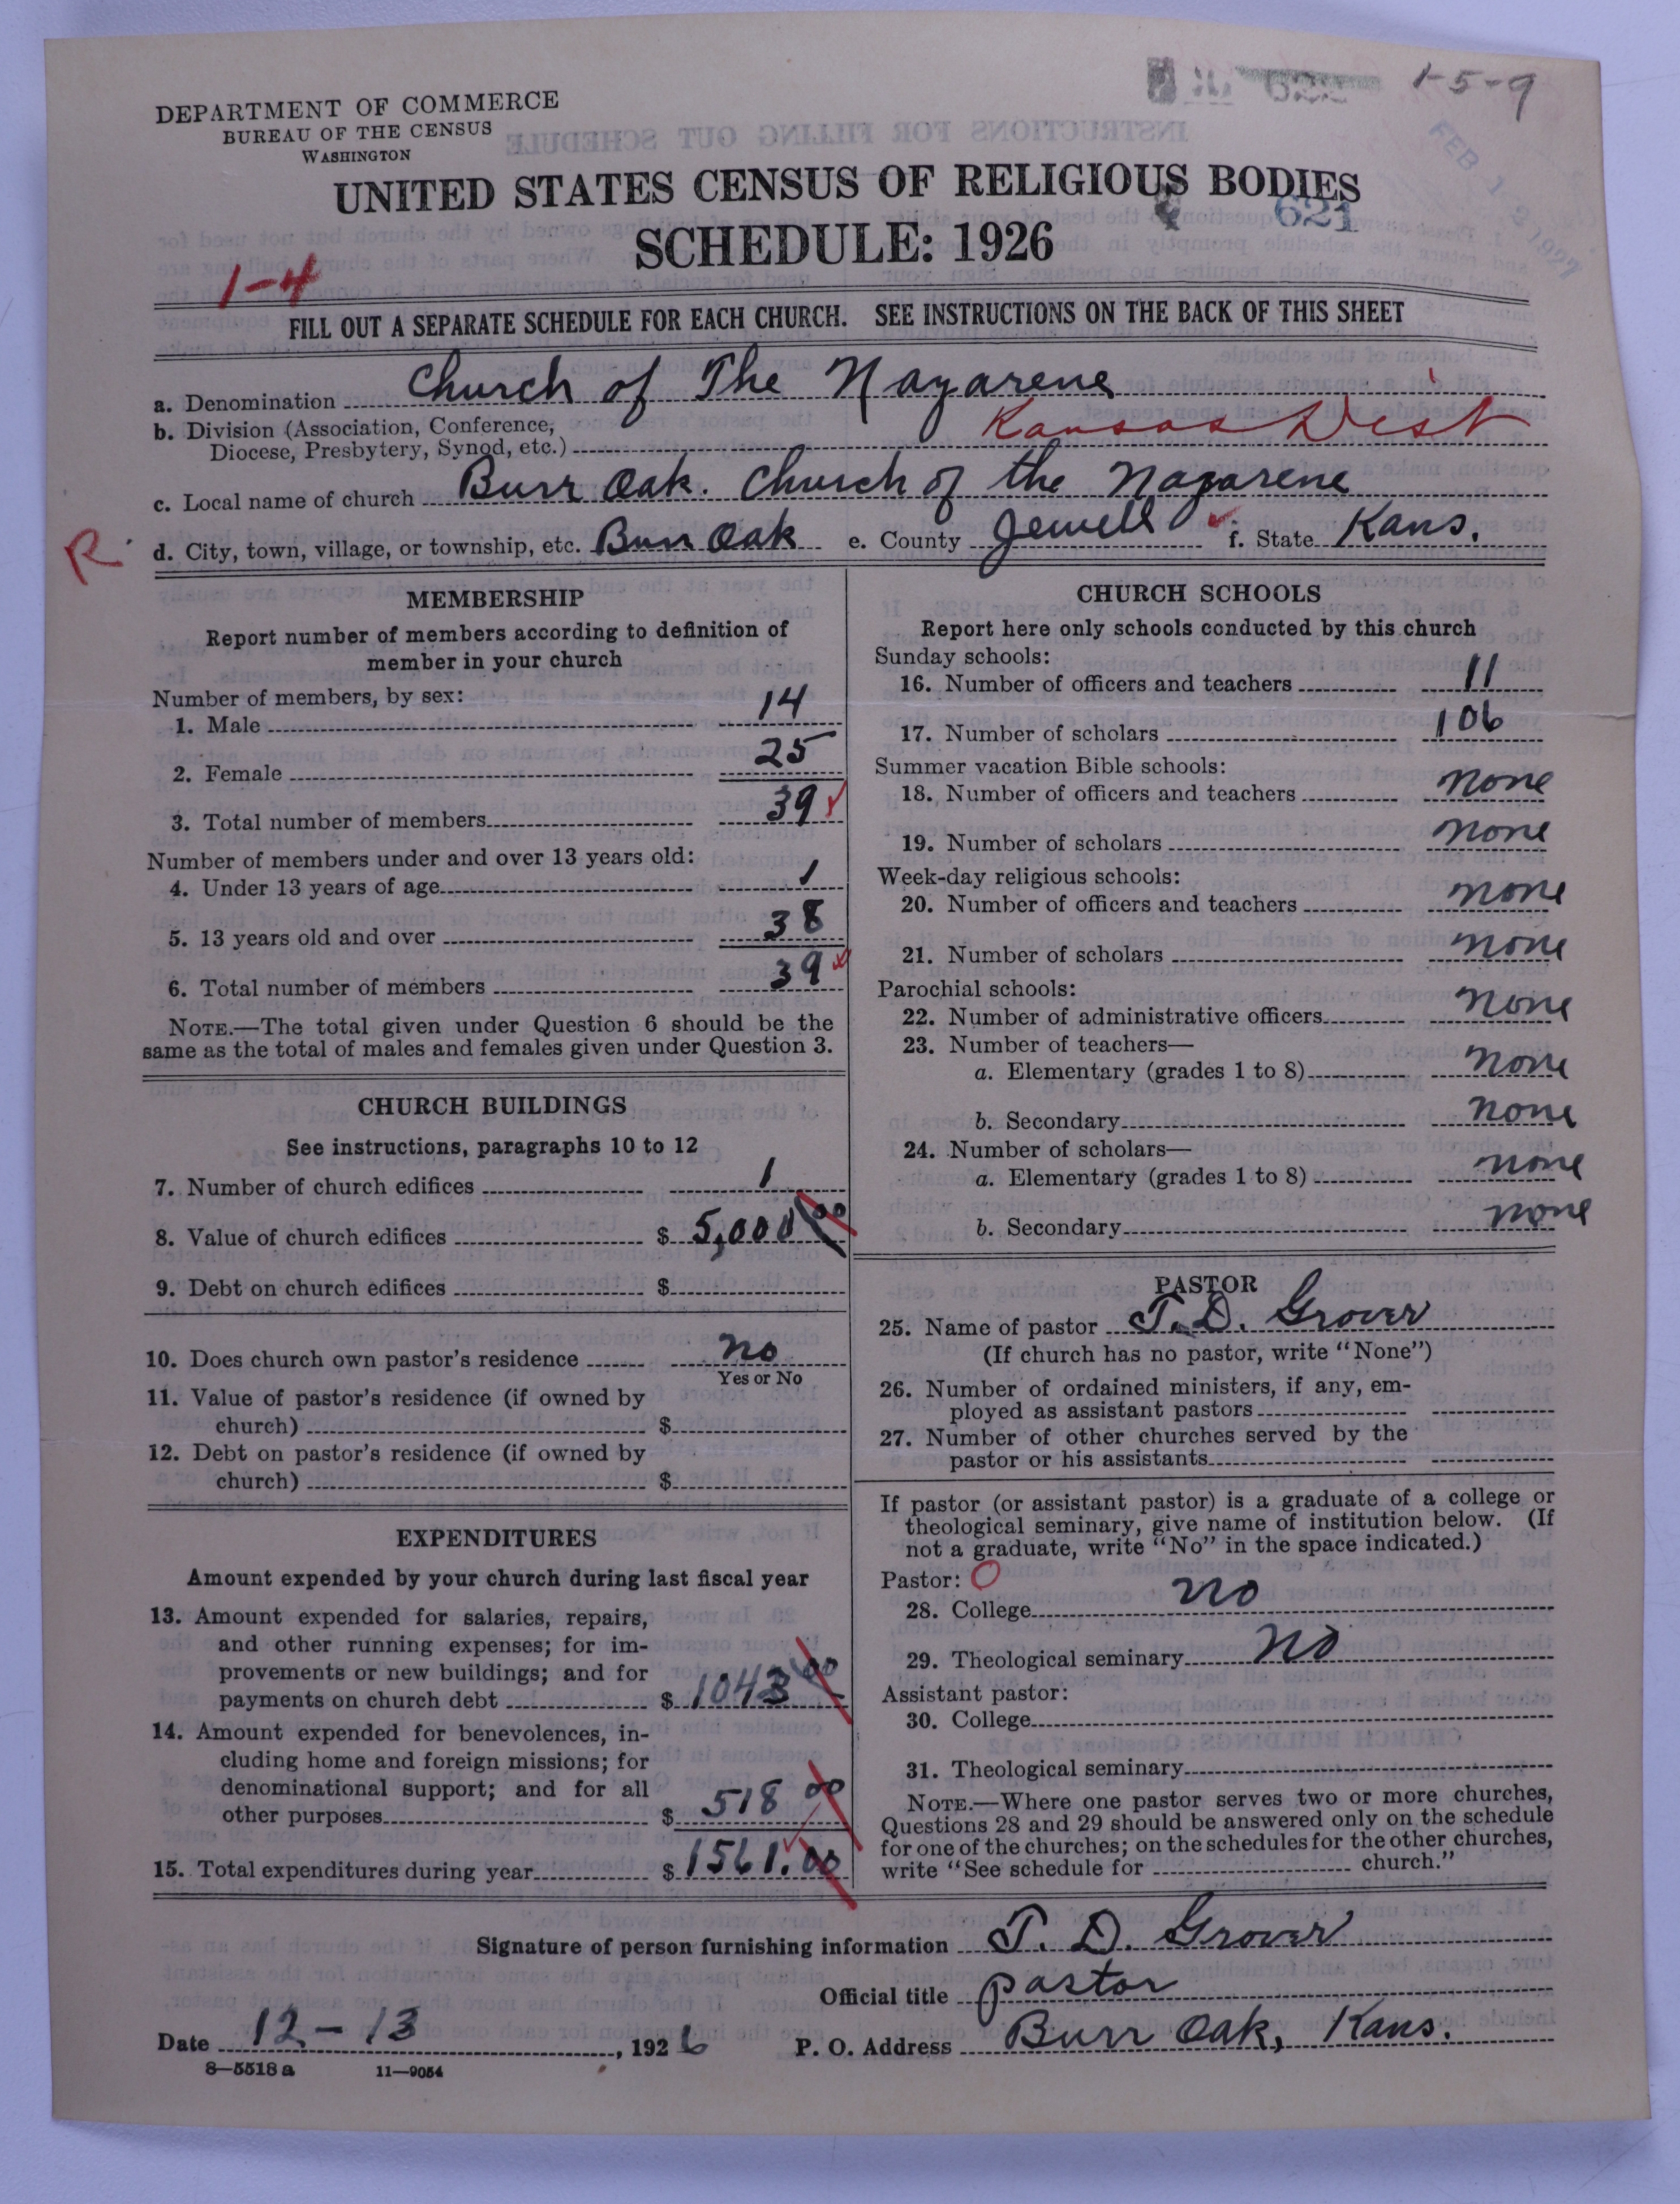 1-5-9
DEPARTMENT OF COMMERCE
BUREAU OF THE CENSUS
WASHINGTON
UNITED STATES CENSUS OF RELIGIOUS BODIES
621
SCHEDULE: 1926
1-4
FILL OUT A SEPARATE SCHEDULE FOR EACH CHURCH. SEE INSTRUCTIONS ON THE BACK OF THIS SHEET
a. Denomination Church of The Nazarene
b. Division (Association, Conference,
Diocese, Presbytery, Synod, etc.) Kansas Dist
c. Local name of church Burr Oak. Church of the Nazarene
R d. City, town, village, or township, etc. Burr Oak e. County Jewell f. State Kans.
MEMBERSHIP
Report number of members according to definition of
member in your church
Number of members, by sex:
1. Male 14
2. Female 25
3. Total number of members 39
Number of members under and over 13 years old:
4. Under 13 years of age 1
5. 13 years old and over 38
6. Total number of members 39
NOTE.—The total given under Question 6 should be the
same as the total of males and females given under Question 3.
CHURCH BUILDINGS
See instructions, paragraphs 10 to 12
7. Number of church edifices 1
8. Value of church edifices $ 5,000 00
9. Debt on church edifices $
10. Does church own pastor's residence no
Yes or No
11. Value of pastor's residence (if owned by
church) $
12. Debt on pastor's residence (if owned by
church) $
EXPENDITURES
Amount expended by your church during last fiscal year
13. Amount expended for salaries, repairs,
and other running expenses; for im-
provements or new buildings; and for
payments on church debt $ 1043 00
14. Amount expended for benevolences, in-
cluding home and foreign missions; for
denominational support; and for all
other purposes $ 518 00
15. Total expenditures during year $ 1561.00
CHURCH SCHOOLS
Report here only schools conducted by this church
Sunday schools:
16. Number of officers and teachers 11
17. Number of scholars 106
Summer vacation Bible schools:
18. Number of officers and teachers none
19. Number of scholars none
Week-day religious schools:
20. Number of officers and teachers none
21. Number of scholars none
Parochial schools:
22. Number of administrative officers none
23. Number of teachers—
a. Elementary (grades 1 to 8) none
b. Secondary none
24. Number of scholars—
a. Elementary (grades 1 to 8) none
b. Secondary none
PASTOR
25. Name of pastor T. D. Grover
(If church has no pastor, write "None")
26. Number of ordained ministers, if any, em-
ployed as assistant pastors
27. Number of other churches served by the
pastor or his assistants
If pastor (or assistant pastor) is a graduate of a college or
theological seminary, give name of institution below. (If
not a graduate, write "No" in the space indicated.)
Pastor: O
28. College no
29. Theological seminary no
Assistant pastor:
30. College
31. Theological seminary
NOTE.—Where one pastor serves two or more churches,
Questions 28 and 29 should be answered only on the schedule
for one of the churches; on the schedules for the other churches,
write "See schedule for church."
Signature of person furnishing information T. D. Grover
Official title pastor
Date 12-13, 1926 P. O. Address Burr Oak, Kans.
8—5518 a 11—9054